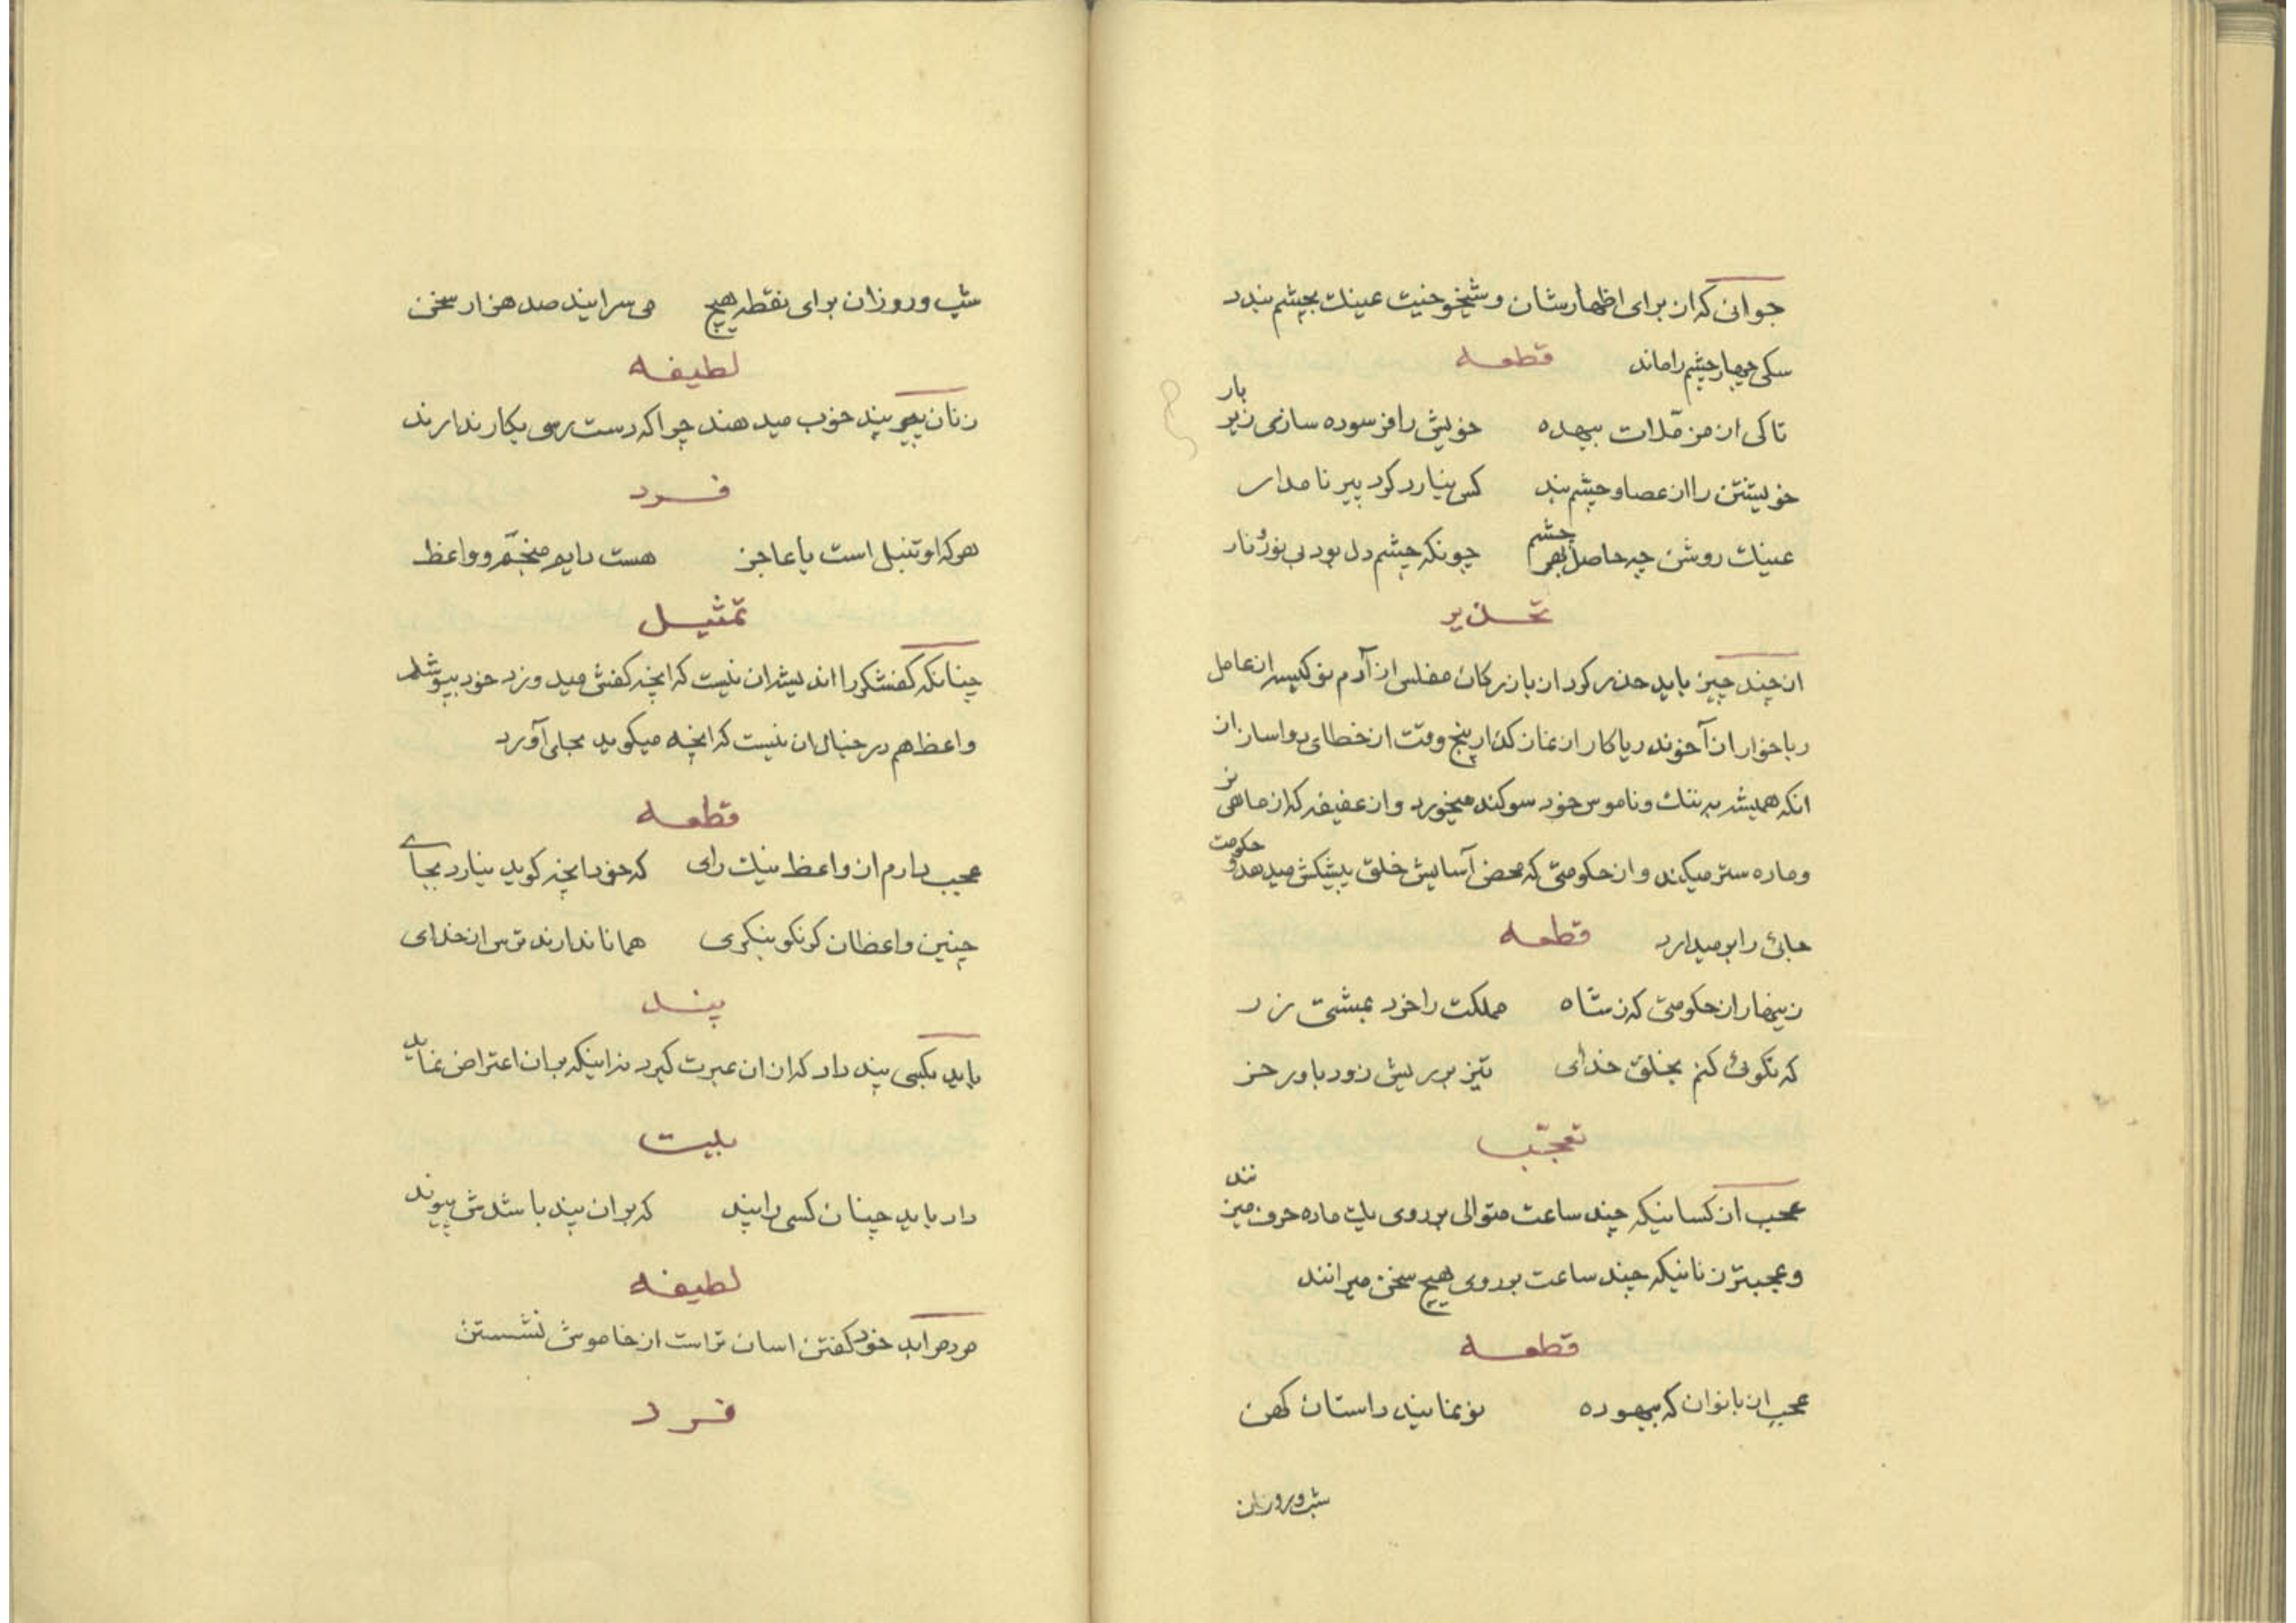 جوانی که از برای اظهار شان و شیخوخیت عینک بچشم بندد
سکی چهار چشم را ماند قطعه
تا کی از مزملات بیهده خویش را فرسوده سازی زیر بار
خویشتن را از عصا و چشم بند کس نیارد کرد پیر نامدار
عینک روشن چه حاصل بهر چشم چونکه چشم دل بود بی نور و تار
تحذیر
از چند چیز باید حذر کرد از بازرکان مفلس از آدم نو کیسه از عامل
رباخوار از آخوند ریاکار از نماز کذار پنج وقت از خطای دواساز از
انکه همیشه به ننک و ناموس خود سوکند میخورد و از عفیفه که از ماهی نر
و ماده ستر میکند و از حکومتی که محض آسایش خلق پیشکش میدهد و حکومت
جائی را بر میدارد قطعه
زینهار از حکومتی که ز شاه مملکت را خرد بمشتی زر
که نکوئی کنم بخلق خدای تیز بر ریش زود باور خر
تعجّب
عجب از کسانیکه چند ساعت متوالی بر روی یک ماده حرف میزنند
و عجبتر زنانیکه چند ساعت بر روی هیچ سخن میرانند
قطعه
عجب از بانوان که بیهوده نو نمایند داستان کهن
شب و روزان
شب و روزان برای نقطه هیچ می سرایند صد هزار سخن
لطیفه
زنان پیر پند خوب میدهند چرا که دست رسی بکار ندارند
فرد
هر که او تنبل است یا عاجز هست دایم منجّم و واعظ
تمثیل
چنانکه کفشکر را اندیشه ان نیست که انچه کفش میدوزد خود بپوشد
واعظ هم در خیال ان نیست که انچه میکوید بجای آورد
قطعه
عجب دارم از واعظ نیک رای که خود انچه کوید نیارد بجای
چنین واعظان کر نکو بنکری همانا ندارند ترس از خدای
پند
باید بکسی پند داد که از ان عبرت کیرد نه اینکه بر ان اعتراض نماید
بیت
داد باید چنان کسی را پند که بر ان پند باشدش پیوند
لطیفه
مردم را بد خود کفتن اسان تر است از خاموش نشستن
فرد